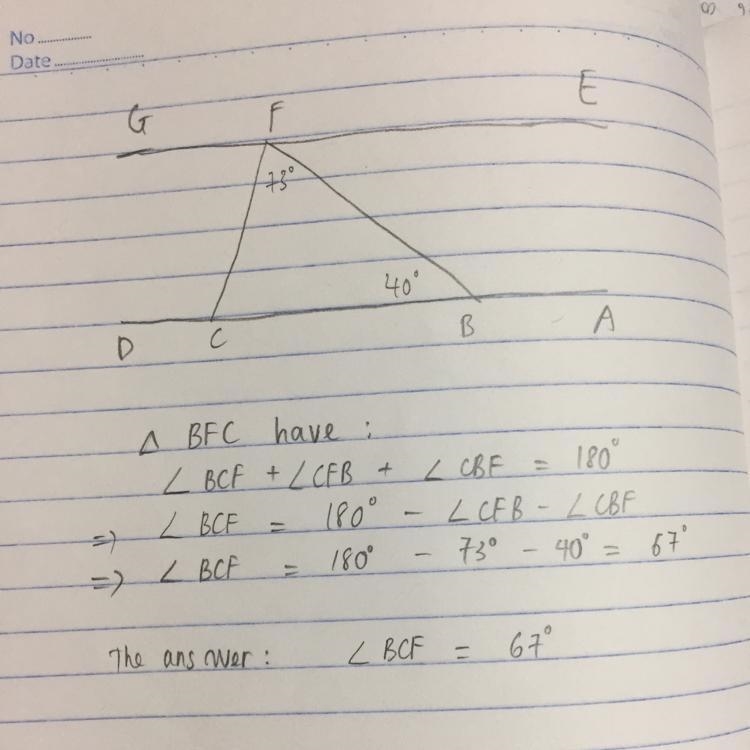 No
Date
G F E
73°
40°
D C B A
Δ BFC have :
∠ BCF + ∠ CFB + ∠ CBF = 180°
=> ∠ BCF = 180° - ∠ CFB - ∠ CBF
=> ∠ BCF = 180° - 73° - 40° = 67°
The answer : ∠ BCF = 67°